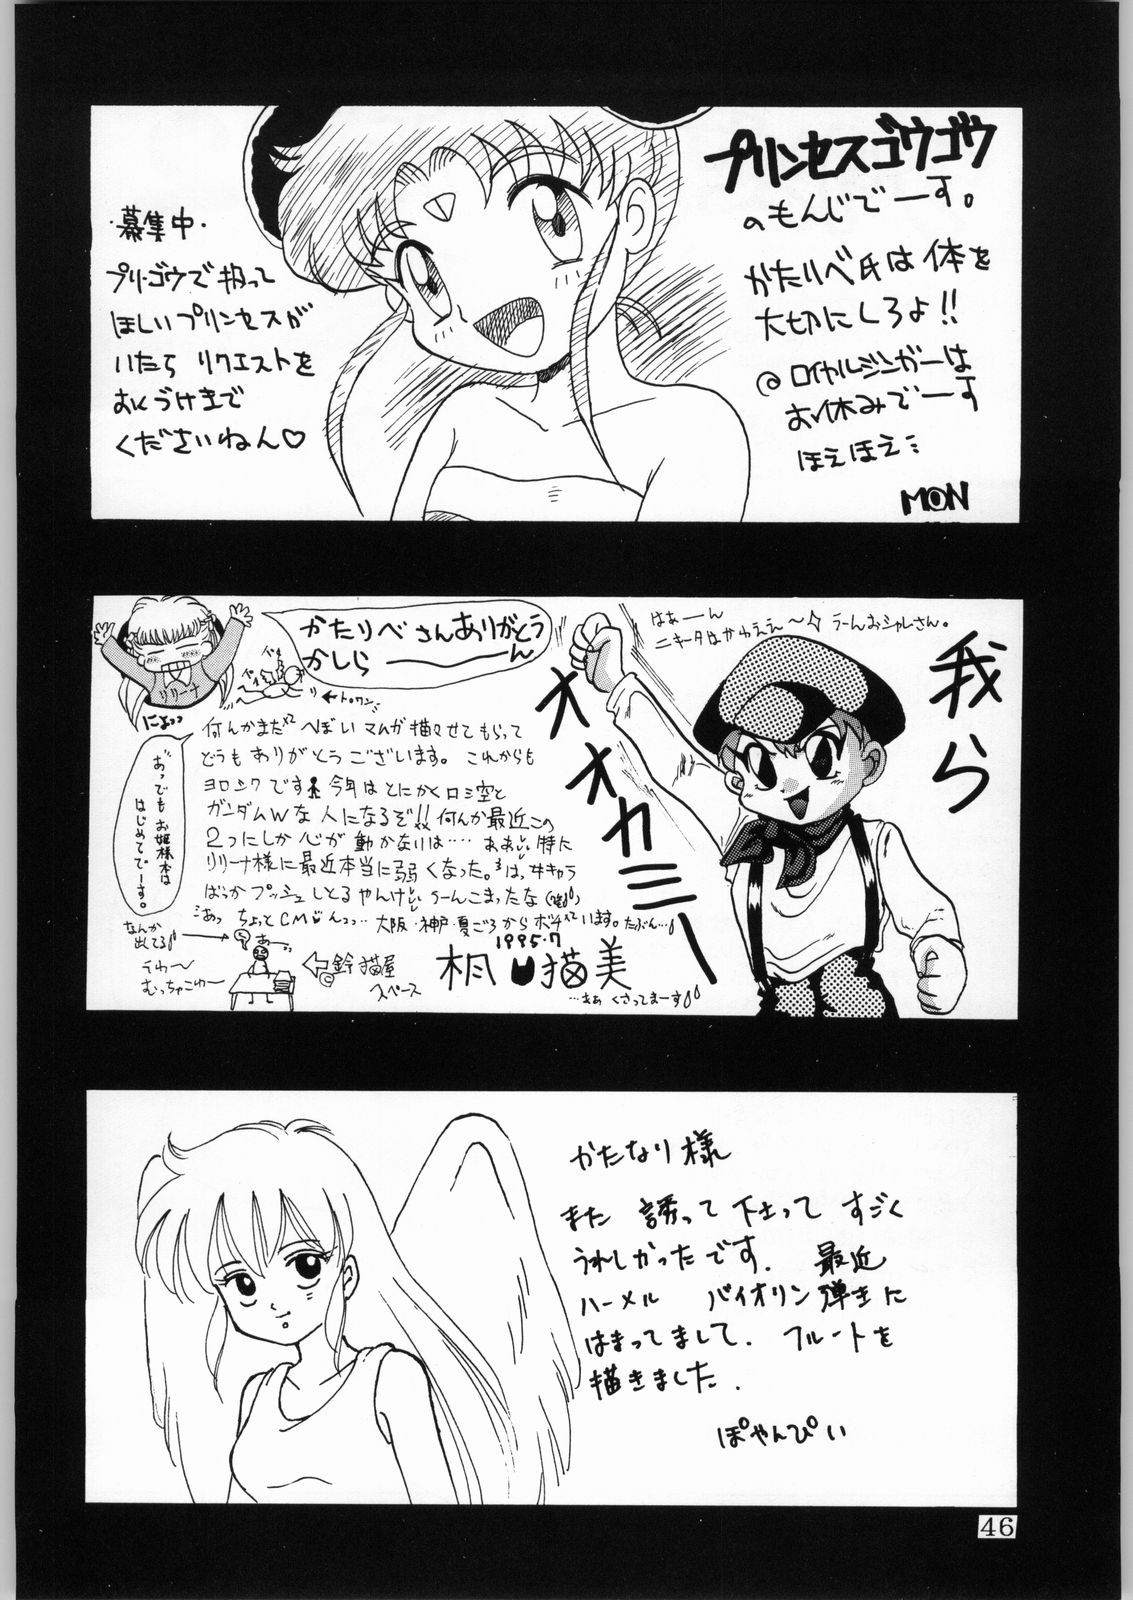 プリンセスゴウゴウ
のもんじでーす。
かたりべ氏は体を
大切にしろよ!!
ロイヤルジンガーは
お休みでーす
ほえほえ
MON
・募集中・
プリ・ゴウで扱って
ほしいプリンセスが
いたら リクエストを
おくづけまで
くださいねん♡
はぁーん
ニキータはかわええ〜 うーんおシャレさん。
我ら
オオカミー
かたりべさんありがとう
かしらーーーん
リリーナ
によっっ
←トロワン
おっでも お姫様本は
はじめてでーす。
何んかまた へぼいマンガ描かせてもらって
どうもありがとうございます。これからも
ヨロシクです 今年はとにかくロミ空と
ガンダムWな人になるぞ!! 何んか最近この
2つにしか心が動かなりは…… 特に
リリーナ様に最近本当に弱くなった。 は、女キャラ
ばっかプッシュしとるやんけ うーんこまったな
あっ ちょっとCM んっっ… 大阪・神戸・夏ごろからボチ います。たぶん…
なんか
出てる
うわ〜
むっちゃこわ〜
鈴猫屋
スペース
1995.7
桐 猫美
…さぁ くさってまーす
かたなり様
また 誘って下さって すごく
うれしかったです. 最近
ハーメル バイオリン弾きに
はまってまして. フルートを
描きました.
ぽやんぴい
46